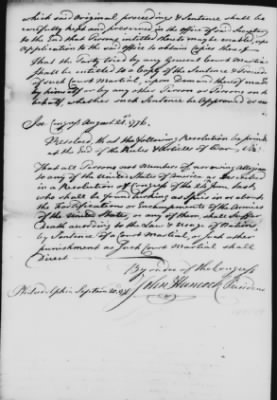 which said original proceeding & Sentence shall be
carefully kept and preserved in the office of said Secretary
to the End that Persons entitled thereto may be enabled, upon
Application to the said office to obtain Copies thereof
That the Party tried by any General Court Martial
Shall be entitled to a Copy of the Sentence & Proceedings
of such Court Martial, upon Demand thereof made
by himself or by any other Person or Persons on his
behalf, whether such Sentence be Approved or not
In Congress August 21st 1776.
Resolved, that the following Resolution be printed
at the End of the Rules & Articles of War, Viz:
That all Persons not Members of, nor owing Allegiance
to any of the United States of America as described
in a Resolution of Congress of the 24 June last,
who shall be found lurking as spies in or about
the Fortifications or Encampments of the Armies
of the United States, or any of them, shall suffer
Death according to the Law & Usage of Nations,
by Sentence of a Court Martial, or such other
punishment as such Court Martial shall
Direct
By order of the Congress
John Hancock President
Philadelphia Septem 20